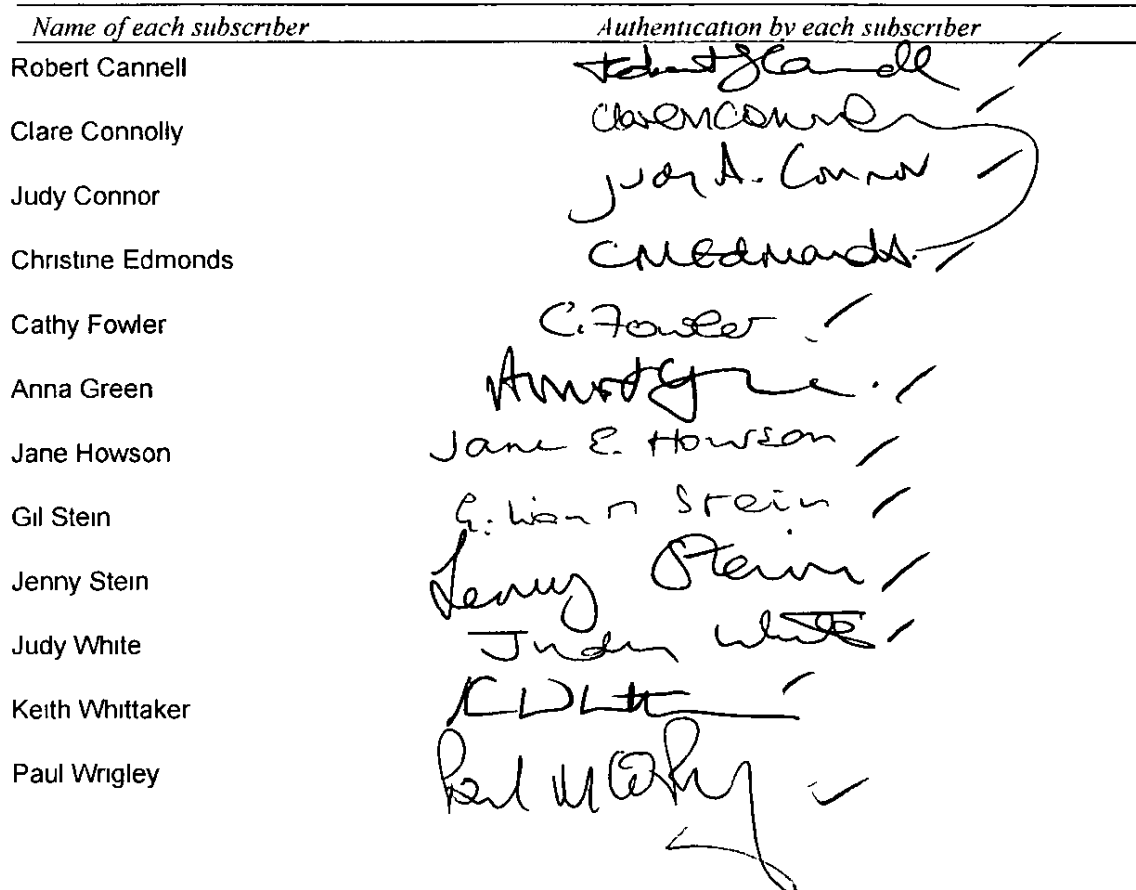 Name of each subscriber Authentication by each subscriber
Robert Cannell
Clare Connolly
Judy Connor Judy A. Connor
Christine Edmonds CM Edmonds.
Cathy Fowler C. Fowler
Anna Green
Jane Howson Jane E. Howson
Gil Stein Stein
Jenny Stein Jenny Stein
Judy White Judy White
Keith Whittaker
Paul Wrigley Paul